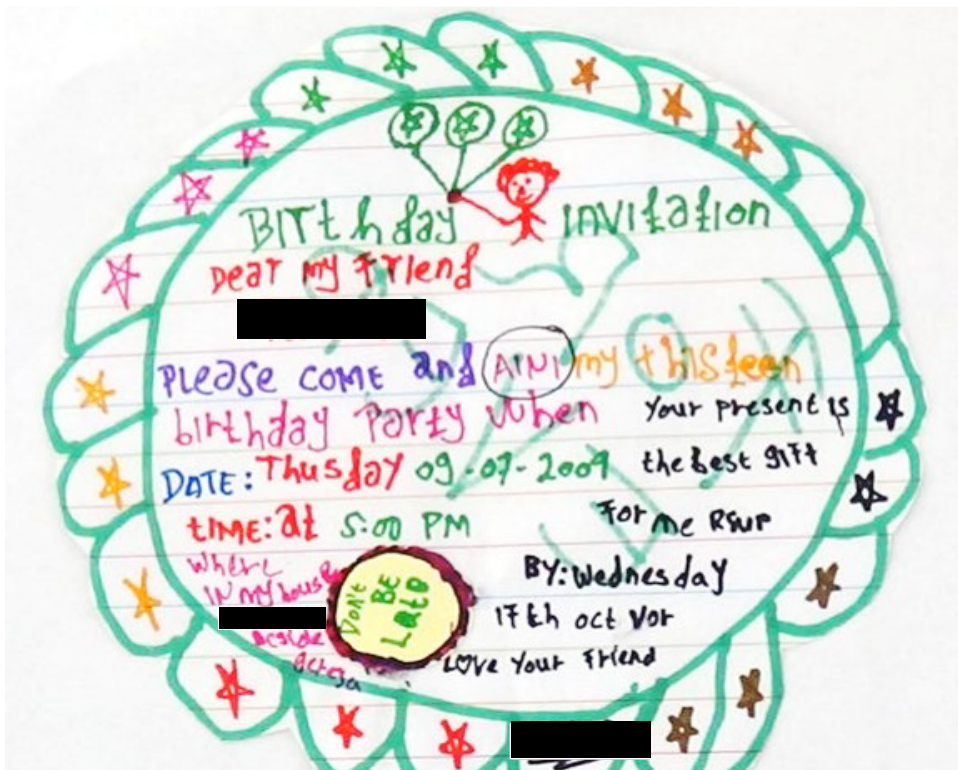 BITthday INVItatION
Dear my friend
Please COME and AINI my thisteen
birthday Party When
DATE: Thusday 09-07-2009
tIME: at 5:00 PM
Where
IN my house
Beside
Don't BE LatE
Your present is
the best gift
For me RSUP
BY: Wednesday
17th oct Vor
LOVe Your Friend